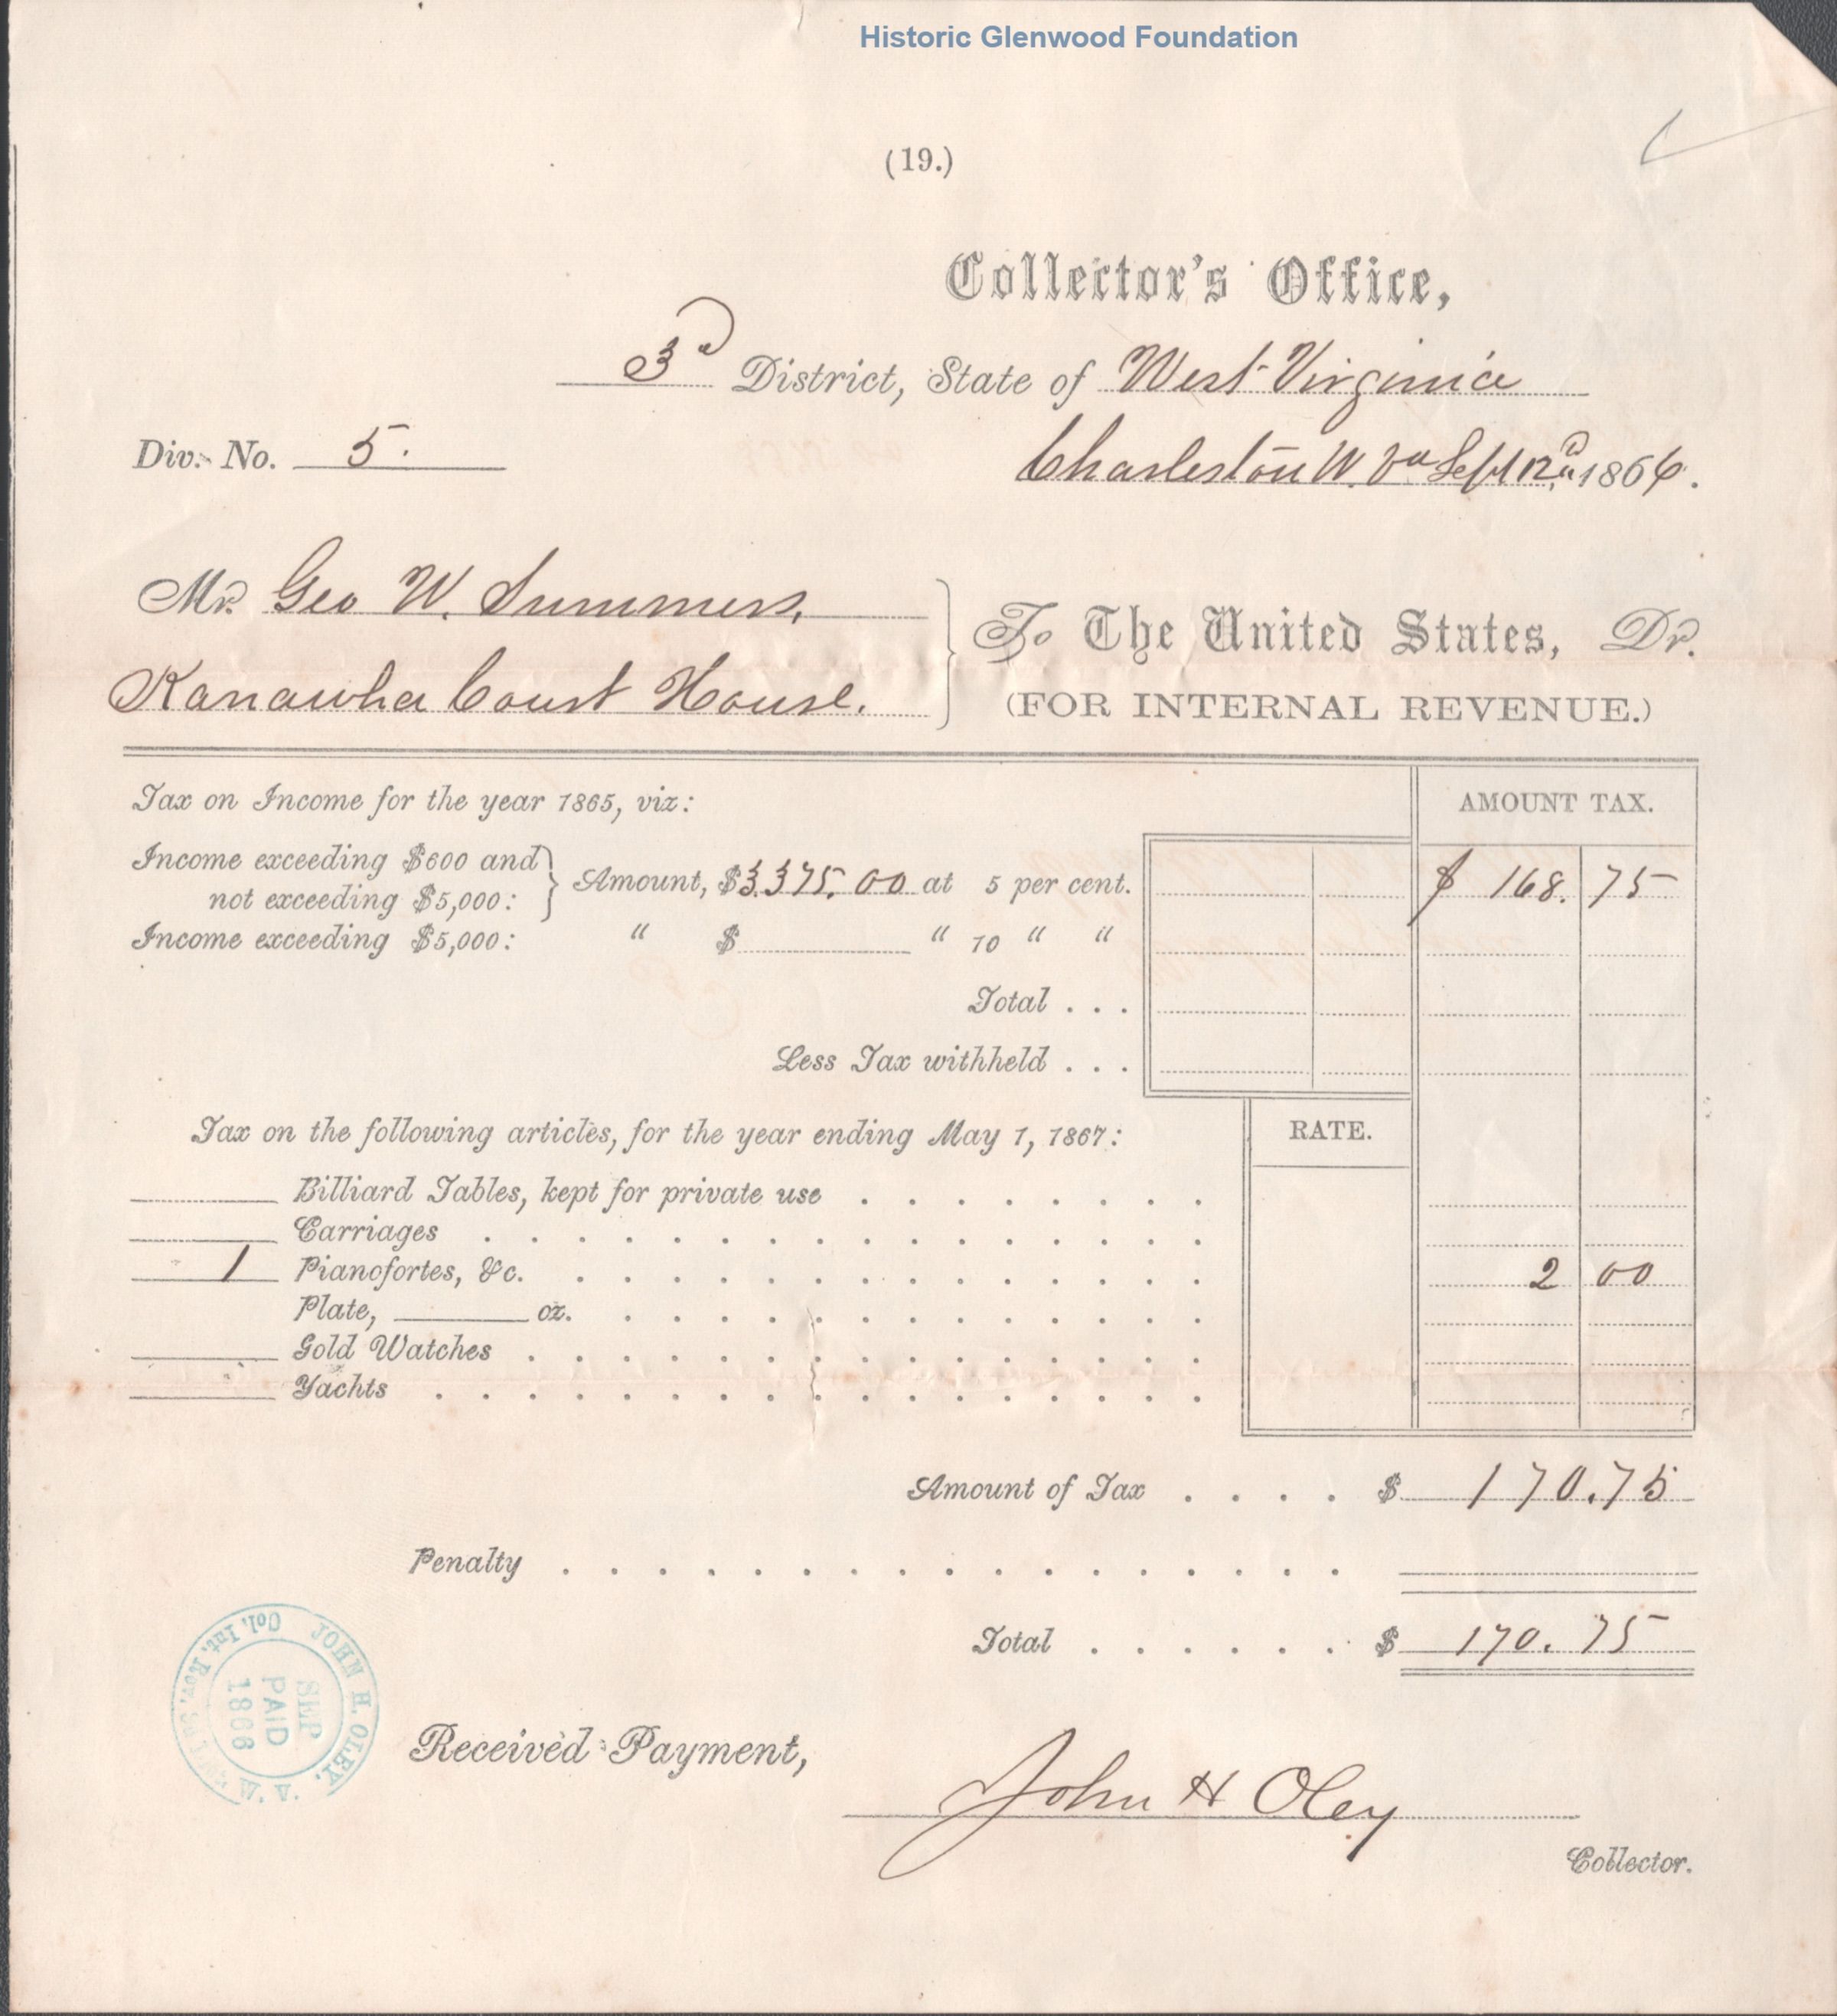 Historic Glenwood Foundation
(19.)
Collector's Office,
3d District, State of West Virginia
Div. No. 5.
Charleston W. Va Sept 12, 1866.
Mr. Geo W. Summers,
Kanawha Court House.
To The United States, Dr.
(FOR INTERNAL REVENUE.)
Tax on Income for the year 1865, viz:
AMOUNT TAX.
Income exceeding $600 and
not exceeding $5,000: } Amount, $3.375.00 at 5 per cent. $ 168. 75
Income exceeding $5,000: " $ " 10 " "
Total . . .
Less Tax withheld . . .
Tax on the following articles, for the year ending May 1, 1867:
RATE.
Billiard Tables, kept for private use
Carriages
1 Pianofortes, &c. 2 00
Plate, oz.
Gold Watches
Yachts
Amount of Tax . . . . $ 170.75
Penalty
Total . . . . . . $ 170. 75
JOHN H. OLEY,
Col. Int. Rev. W. VA.
SEP
PAID
1866
Received Payment,
John H Oley
Collector.